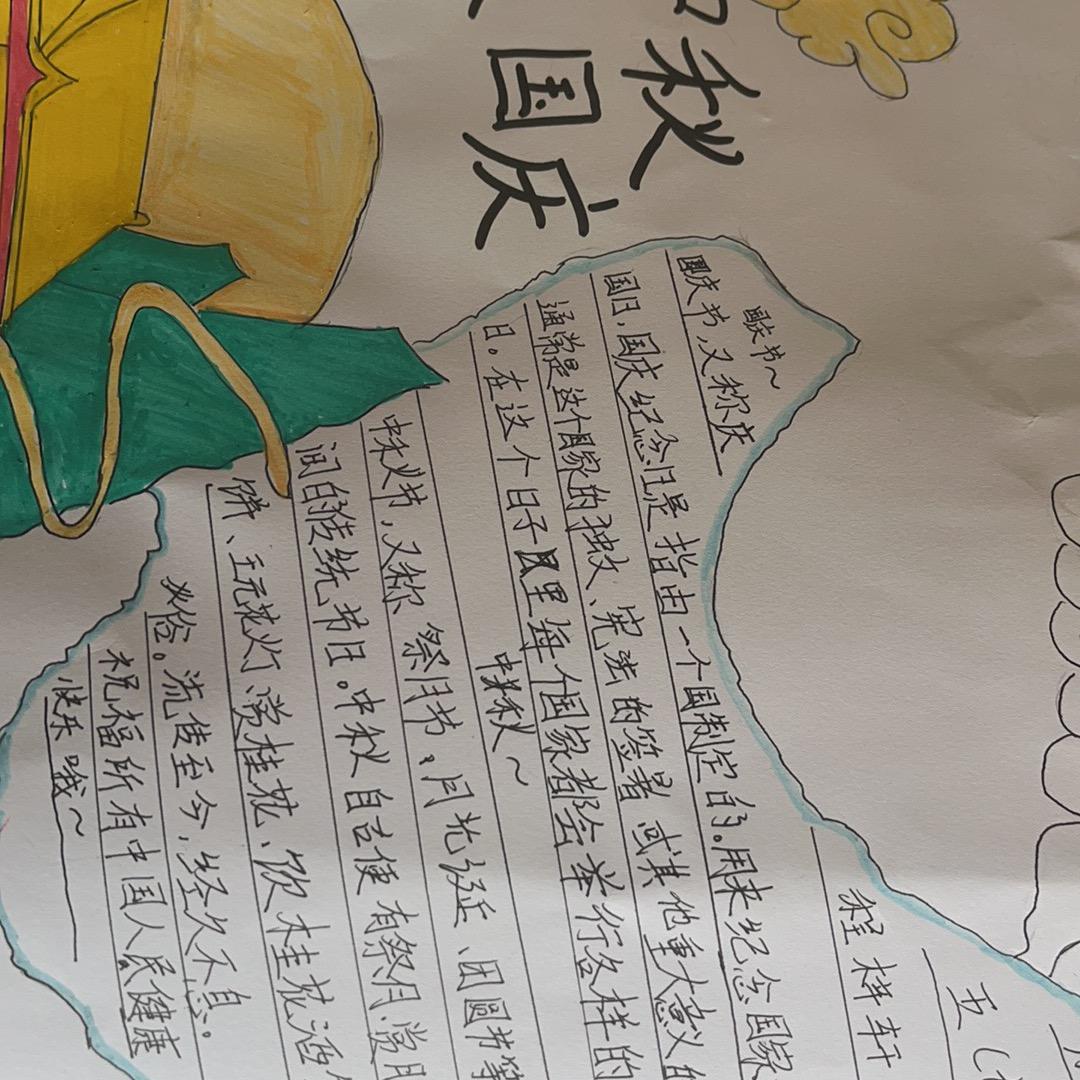 秋
国庆
国庆节~
国庆节,又称庆
国日,国庆纪念日是指由一个国制定的。用来纪念国家
通常是这个国家的独立、宪法的签署或其他重大意义的
日。在这个日子里每个国家都会举行各样的
中秋~
中秋节,又称祭月节、月光诞、团圆节等
间的传统节日。中秋自古便有祭月、赏月
饼、玩花灯、赏桂花、饮桂花酒
俗。流传至今,经久不息。
祝福所有中国人民健康
快乐哦~
程梓轩
五(